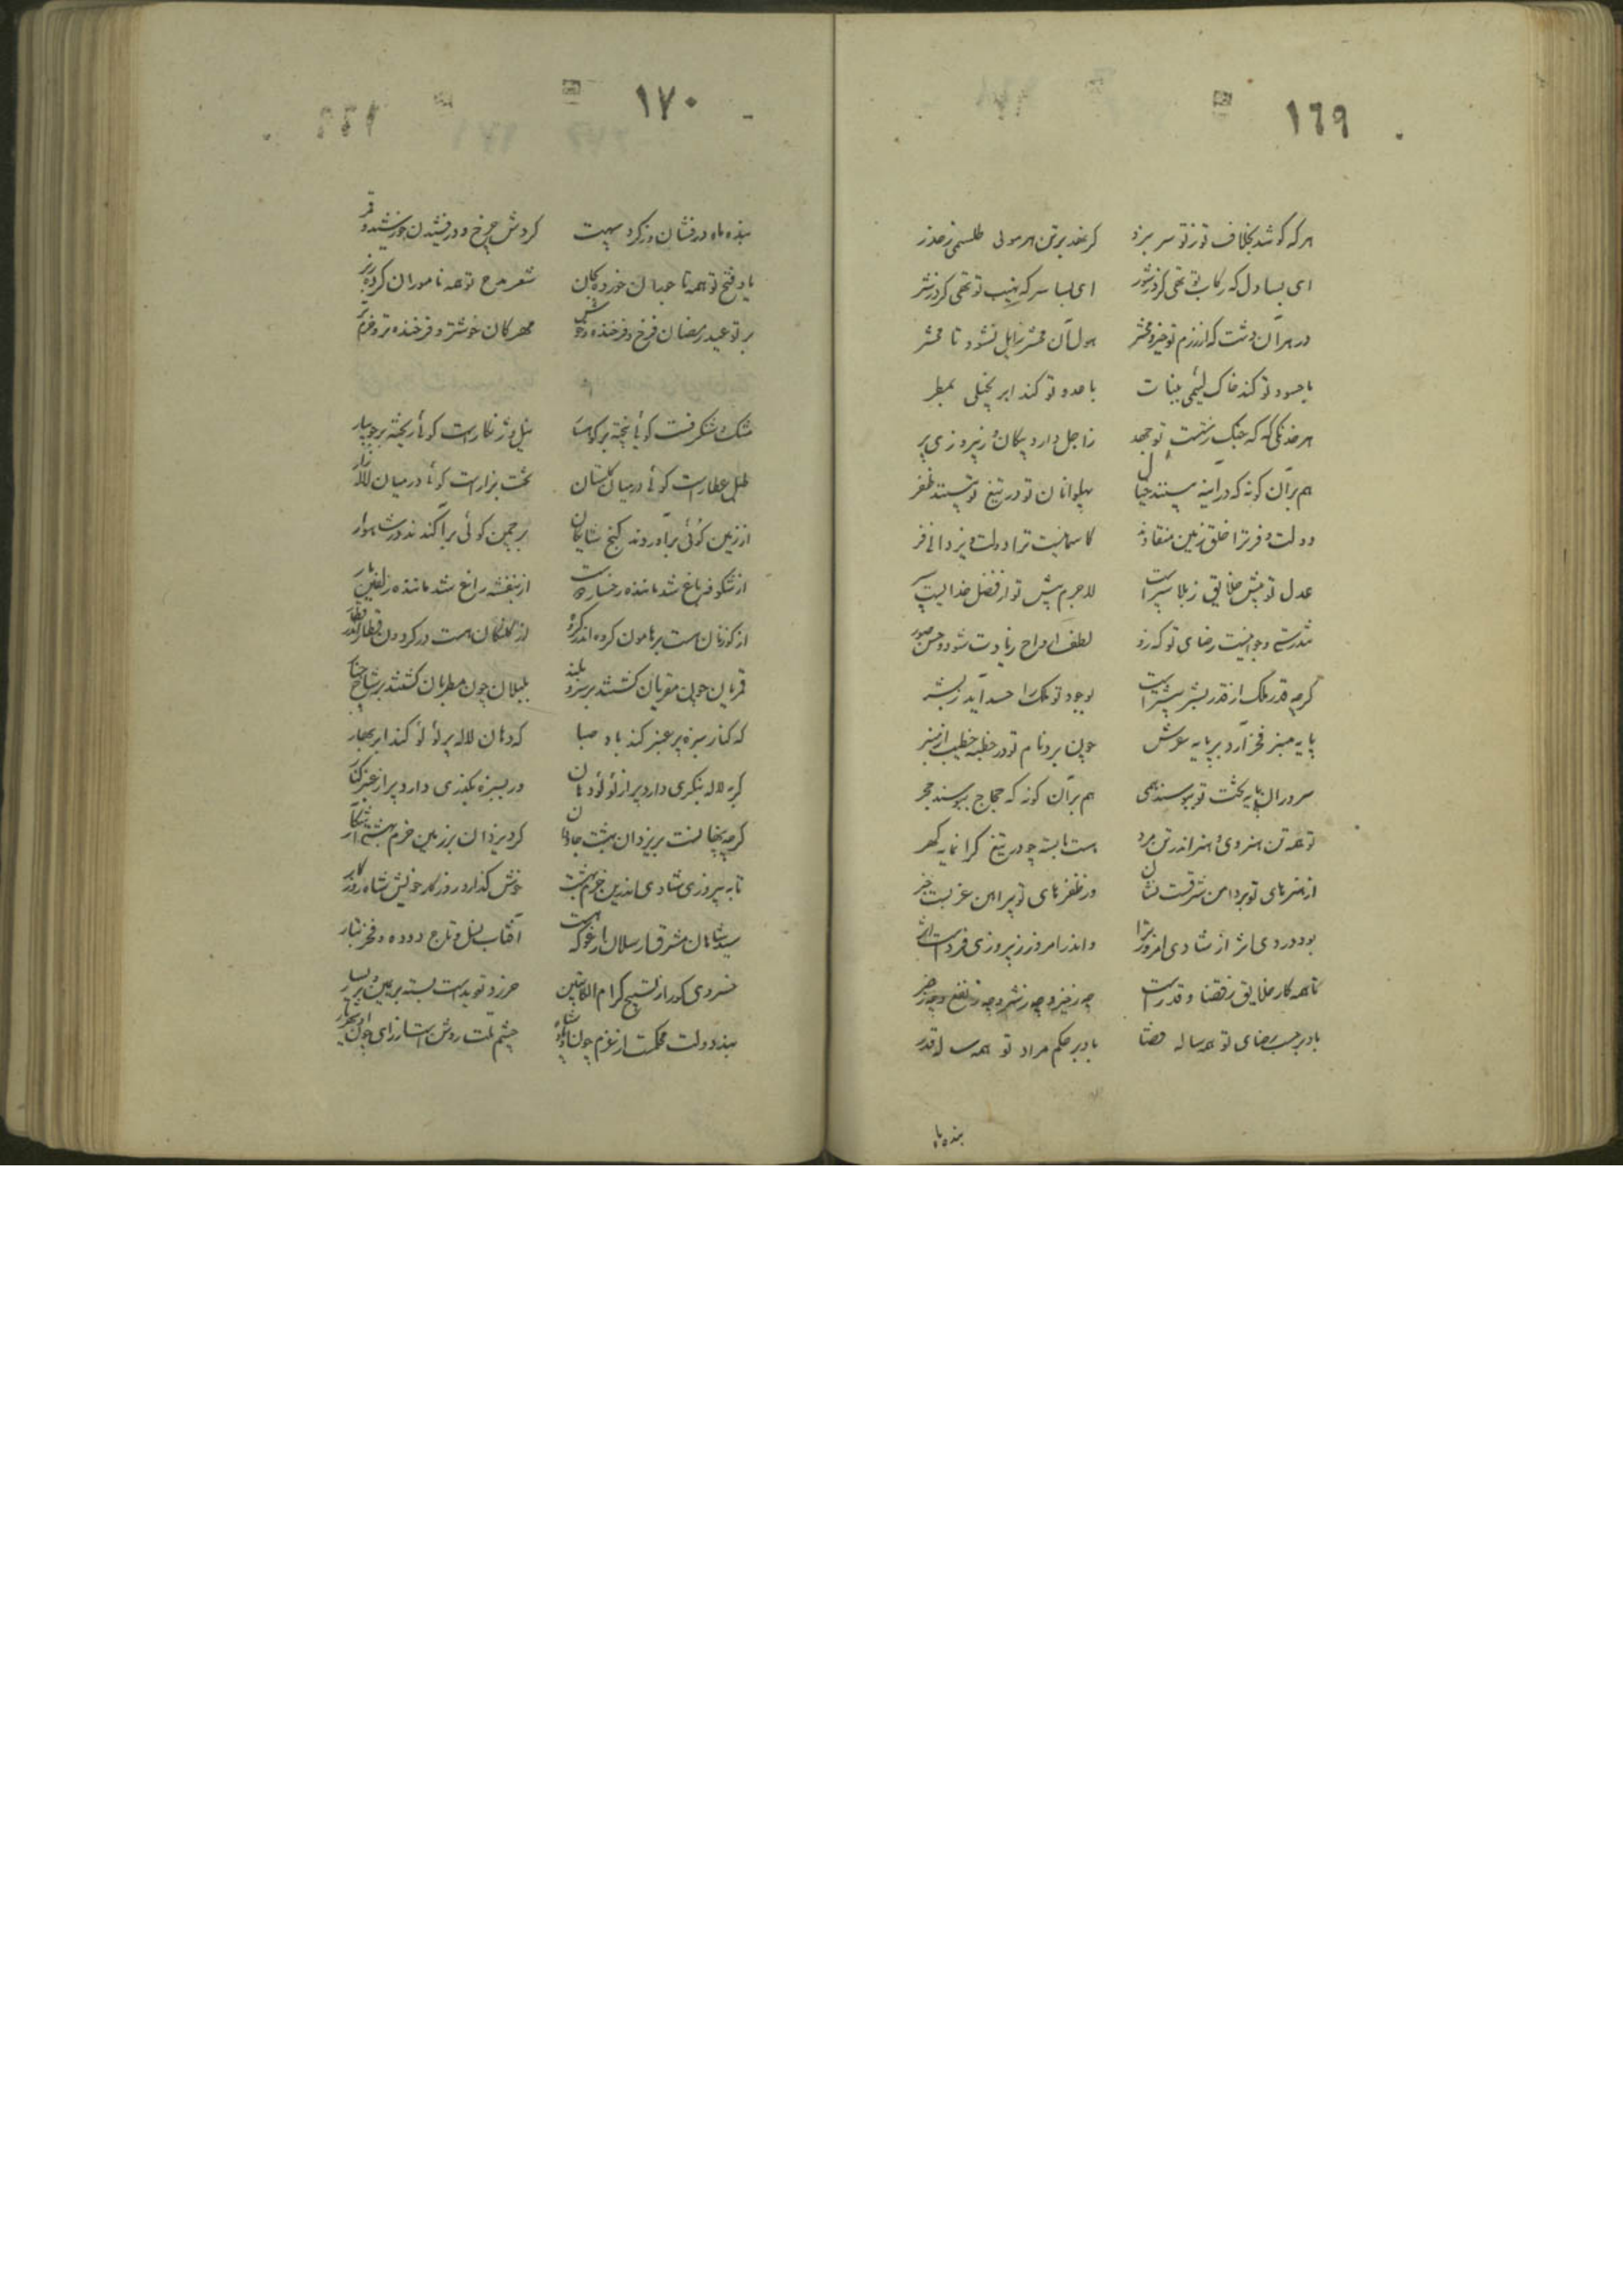 ١٦٩
هر که کوشد بخلاف تو ز تو سر نبرد کر نهد بر تن هر موی طلسمی ز حذر
ای بسا دل که رکاب تو تهی کرد ز شور ای بسا سر که نهیب تو تهی کرد ز شر
در هر آن دشت که از رزم تو خیزد محشر هول آن محشر زایل نشود تا محشر
با حسود تو کند خاک لئیمی بنبات با عدو تو کند ابر بخیلی بمطر
هر خدنکی که که جنک ز شست تو جهد ز اجل دارد پیکان و ز پیروزی پر
هم بر آن کونه که در آینه بینند خیال پهلوانان تو در تیغ تو بینند ظفر
دولت و فر ترا خلق زمین منقادند کاسمانیست ترا دولت و یزدانی فر
عدل تو پیش خلایق ز بلا سپر است لاجرم پیش تو از فضل خداییست سپر
رضای تو که زو لطف ارواح زیادت شود و حسن صور
کرچه قدر ملک از قدر بشر بیشتر است بوجود تو ملک را حسد آید ز بشر
پایه منبر فخر آرد بر پایه عرش چون برد نام تو در خطبه خطیب از منبر
سروران پایه تخت تو ببوسند همی هم بر آن کونه که حجاج ببوسند حجر
تو همه تن هنری و هنر اندر تن مرد هست بایسته چو در تیغ کرانمایه کهر
از هنرهای تو بر دامن شرقست نشان وز ظفرهای تو پیرامن غربست خبر
بود در دی اثر از شادی امروز ترا و اندر امروز ز پیروزی فرداست اثر
تا همه کار خلایق ز قضا و قدر است چه ز خیر و چه ز شر و چه ز نفع و چه ز ضر
باد بر حسب رضای تو همه ساله قضا باد بر حکم مراد تو همه ساله قدر
بنده ماه
١٧٠
بنده ماه درفشان و ز کرد سپهت کردش چرخ و درفشیدن خورشید و قمر
یاد فتح تو همه تاجوران خورده بکان شعر مدح تو همه ناموران کرده ز بر
بر تو عید رمضان فرخ و فرخنده و خوش مهرکان خوشتر و فرخنده تر و خرم تر
مشک و شنکرفست کوئی بیخته بر کوهسار نیل و زنکار است کوئی ریخته بر جویبار
طبل عطار است کوئی در میان کلستان تخت بزاز است کوئی در میان لاله زار
از زمین کوئی بر آوردند کنج شایکان بر چمن کوئی پراکندند در شاهوار
از شکوفه باغ شد ماننده رخسار دوست از بنفشه راغ شد ماننده زلفین یار
از کوزنان هست بر هامون کروه اندر کروه از کلنکان هست در کردون قطار اندر قطار
قمریان چون مقریان کشتند بر سرو بلند بلبلان چون مطربان کشتند بر شاخ چنار
که کنار سبزه پر عنبر کند باد صبا که دهان لاله پر لؤلؤ کند ابر بهار
کر به لاله بنکری دارد پر از لؤلؤ دهان ور بسبزه بکذری دارد پر از عنبر کنار
کرچه پنهانست بر یزدان بهشت جاودان کرد یزدان بر زمین خرم بهشتی آشکار
تا به پیروزی و شادی اندرین خرم بهشت خوش کذارد روزکار خویش شاه روزکار
سید شاهان مشرق ارسلان ارغو که هست آفتاب نسل و تاج دوده و فخر تبار
خسروی کو را از تسبیح کرام الکاتبین حرز و تعویذ است بسته بر یمین و بر یسار
بند دولت محکمست از عزم چون او پادشاه چشم ملت روشن است از رای چون او شهریار